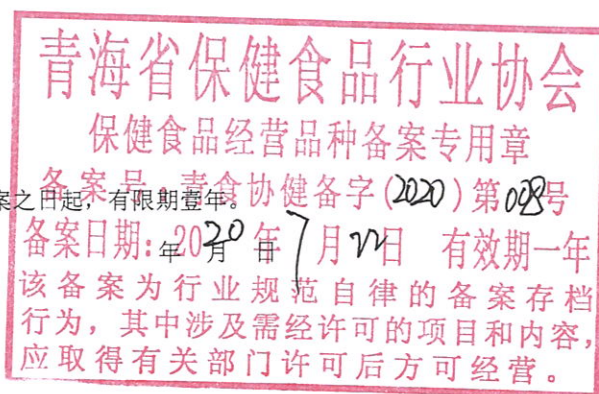 青海省保健食品行业协会
保健食品经营品种备案专用章
备案号：青食协健备字(2020)第008号
案之日起，有限期壹年。
备案日期：2020年7月22日 有效期一年
年 月 日
该备案为行业规范自律的备案存档
行为，其中涉及需经许可的项目和内容，
应取得有关部门许可后方可经营。